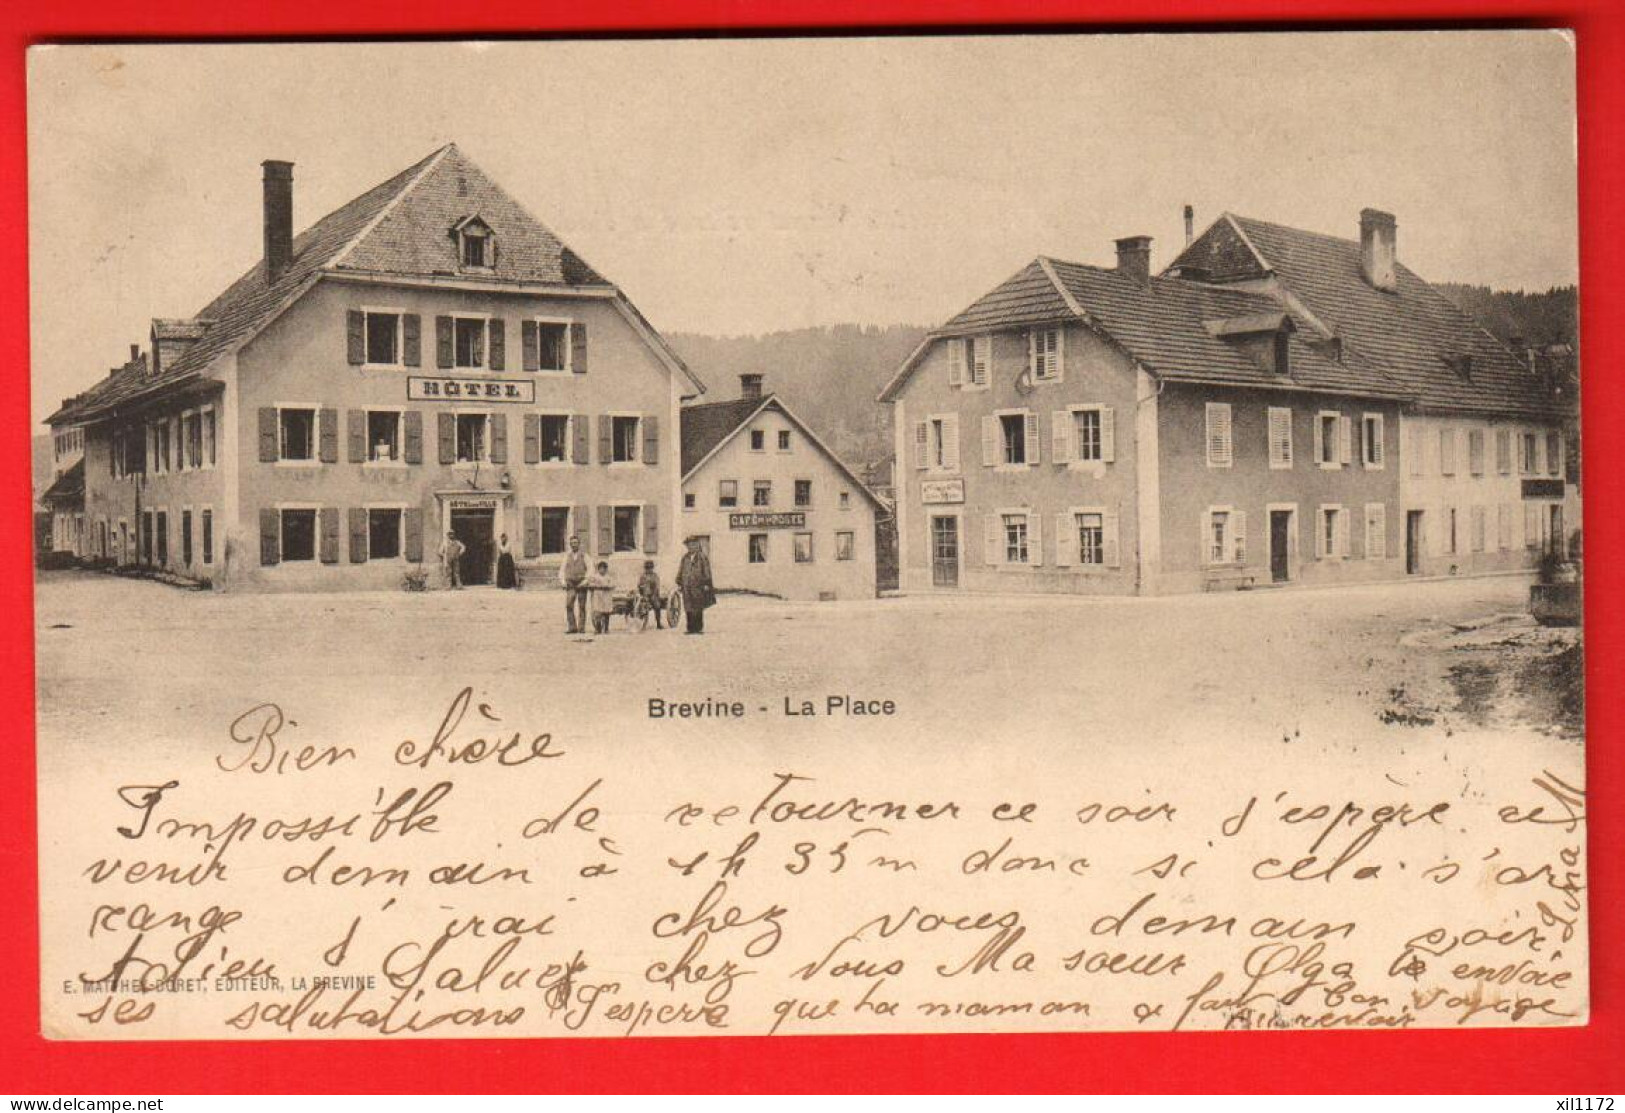 HÔTEL
HÔTEL DE VILLE
CAFÉ DE POSTE
Brevine - La Place
Bien chère
Impossible de retourner ce soir j'espère re
venir demain à 1h 35 m donc si cela s'ar
range j'irai chez vous demain soir
Adieu Saluez chez vous Ma sœur Olga te envoie
ses salutations J'espère que ta maman a fait bon voyage
Au revoir
Lina M
E. MATTHEY-DORET, EDITEUR, LA BREVINE
delcampe.net
xil1172